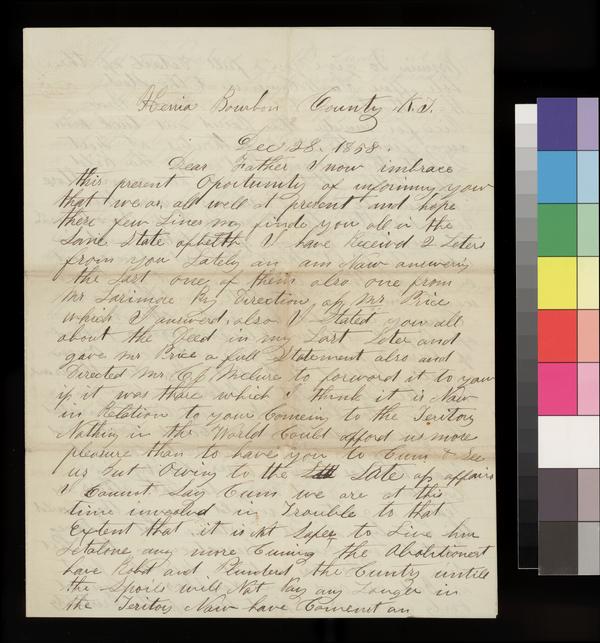 Xenia Bourbon County K.T.
Dec 28. 1858.
Dear Father I now imbrace
this present Oportunity of informing yow
that we ar all well at present and hope
these few Lines may finde you all in the
Same State of helth I have Received 2 Leters
from you Lately an am Now answering
the Last one of them also one from
Mr Larimore By Direction of Mr Price
which I answerd, also I Stated you all
about the Deed in my Last Leter and
gave Mr Price a full Statement also and
Directed Mr McClure to forword it to yow
if it was thare which I think it is Now
in Relation to your Comein to the Teritory
Nothing in the World Could afford us more
pleasure than to have you to Cum & See
us but Owing to the State of affairs
I Cannot Say Cum we are at this
time involved in Trouble to that
Extent that it is Not Safe to Live hear
Letalone any more Cuming the Abolitionest
have Robd and Plunderd the Cuntry untill
the Spoils will Not Pay any Longer in
the Teritory Now have Comenct on